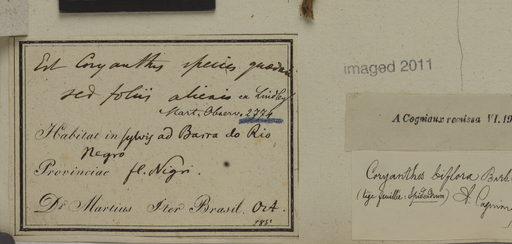 Est Coryanthis species quaedam
sed foliis alienis ex Lindley
Mart. Observ. 2774
Habitat in sylvis ad Barra do Rio
Negro
Provinciae fl. Nigri.
Dr. Martius Iter Brasil. Oct.
imaged 2011
A Cogniaux remissa VI.19
Coryanthes biflora Barb
(tige feuillée: Epidendrum) A. Cogniaux